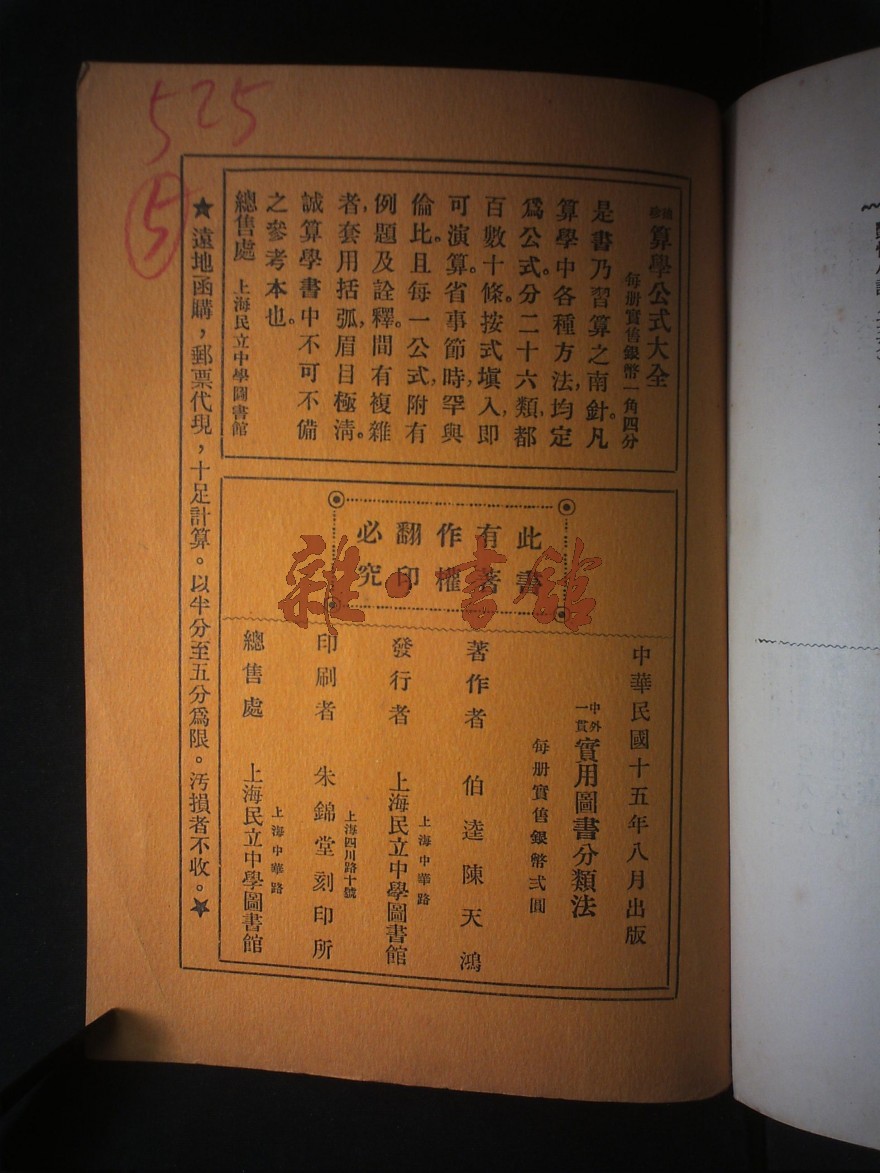 525
5
算學公式大全
每册實售銀幣一角四分
是書乃習算之南針。凡
算學中各種方法，均定
爲公式。分二十六類，都
百數十條。按式塡入，即
可演算。省事節時，罕與
倫比。且每一公式，附有
例題及詮釋。間有複雜
者，套用括弧，眉目極清。
誠算學書中不可不備
之參考本也。
總售處 上海民立中學圖書館
此書
有著
作權
翻印
必究
中華民國十五年八月出版
中外一貫 實用圖書分類法
每册實售銀幣弍圓
著作者 伯逵陳天鴻
上海中華路
發行者 上海民立中學圖書館
上海四川路十號
印刷者 朱錦堂刻印所
上海中華路
總售處 上海民立中學圖書館
★遠地函購，郵票代現，十足計算。以半分至五分爲限。汚損者不收。★
雜·書館